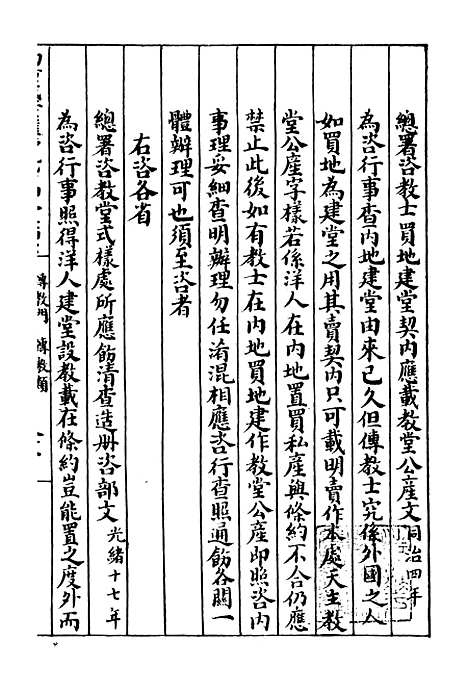 總署咨教士買地建堂契內應載教堂公產文同治四年
為咨行事查內地建堂由來已久但傳教士究係外國之人
如買地為建堂之用其賣契內只可載明賣作本處天主教
堂公產字樣若係洋人在內地置買私產與條約不合仍應
禁止此後如有教士在內地買地建作教堂公產即照咨內
事理妥細查明辦理勿任淆混相應咨行查照通飭各關一
體辦理可也須至咨者
右咨各省
總署咨教堂式樣處所應飭清查造册咨部文光緒十七年
為咨行事照得洋人建堂設教載在條約豈能置之度外而
傳教門 傳教類